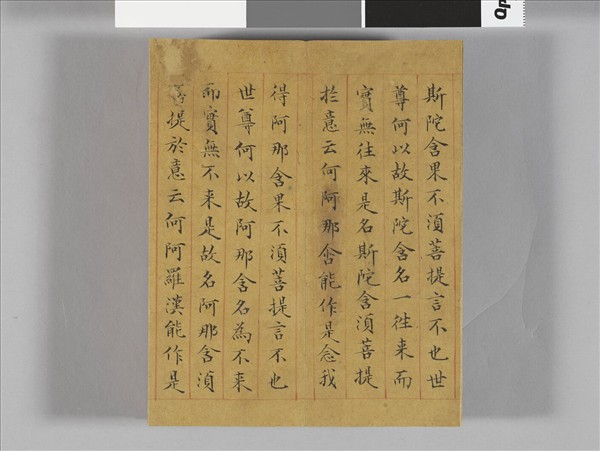 斯陀含果不湏菩提言不也世
尊何以故斯陀含名一徃来而
實無往來是名斯陀含湏菩提
於意云何阿那含能作是念我
得阿那含果不湏菩提言不也
世尊何以故阿那含名為不来
而實無不来是故名阿那含湏
菩提於意云何阿羅漢能作是